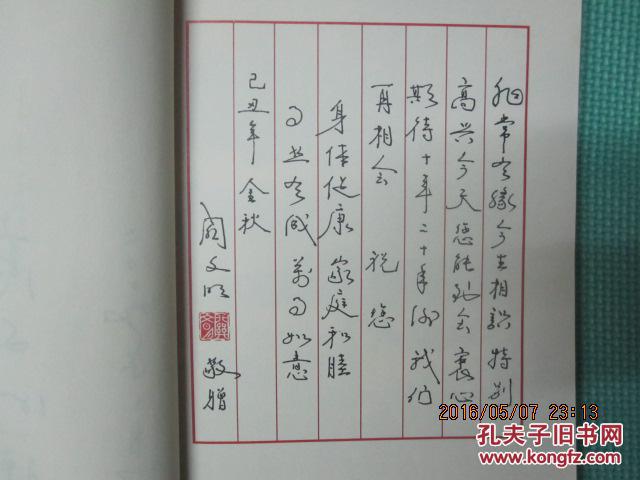 非常有缘今生相识特别
高兴今天您能到会衷心
期待十年二十年后我们
再相会 祝您
身体健康 家庭和睦
事业有成 萬事如意
己丑年金秋
文 敬贈
2016/05/07 23:13
孔夫子旧书网
www.kongfz.com